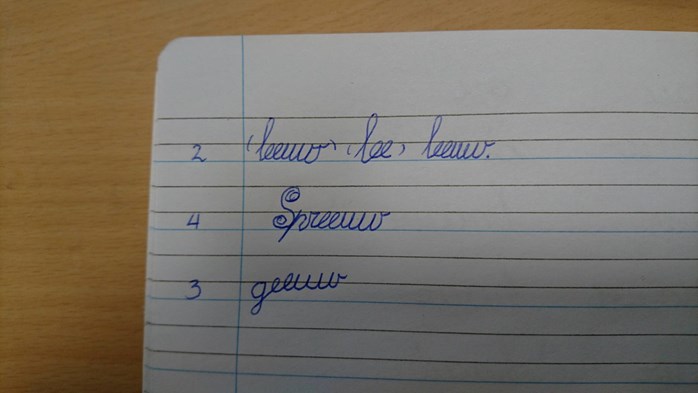 2 (leeuw) (lee) leeuw.
4 Spreeuw
3 geeuw